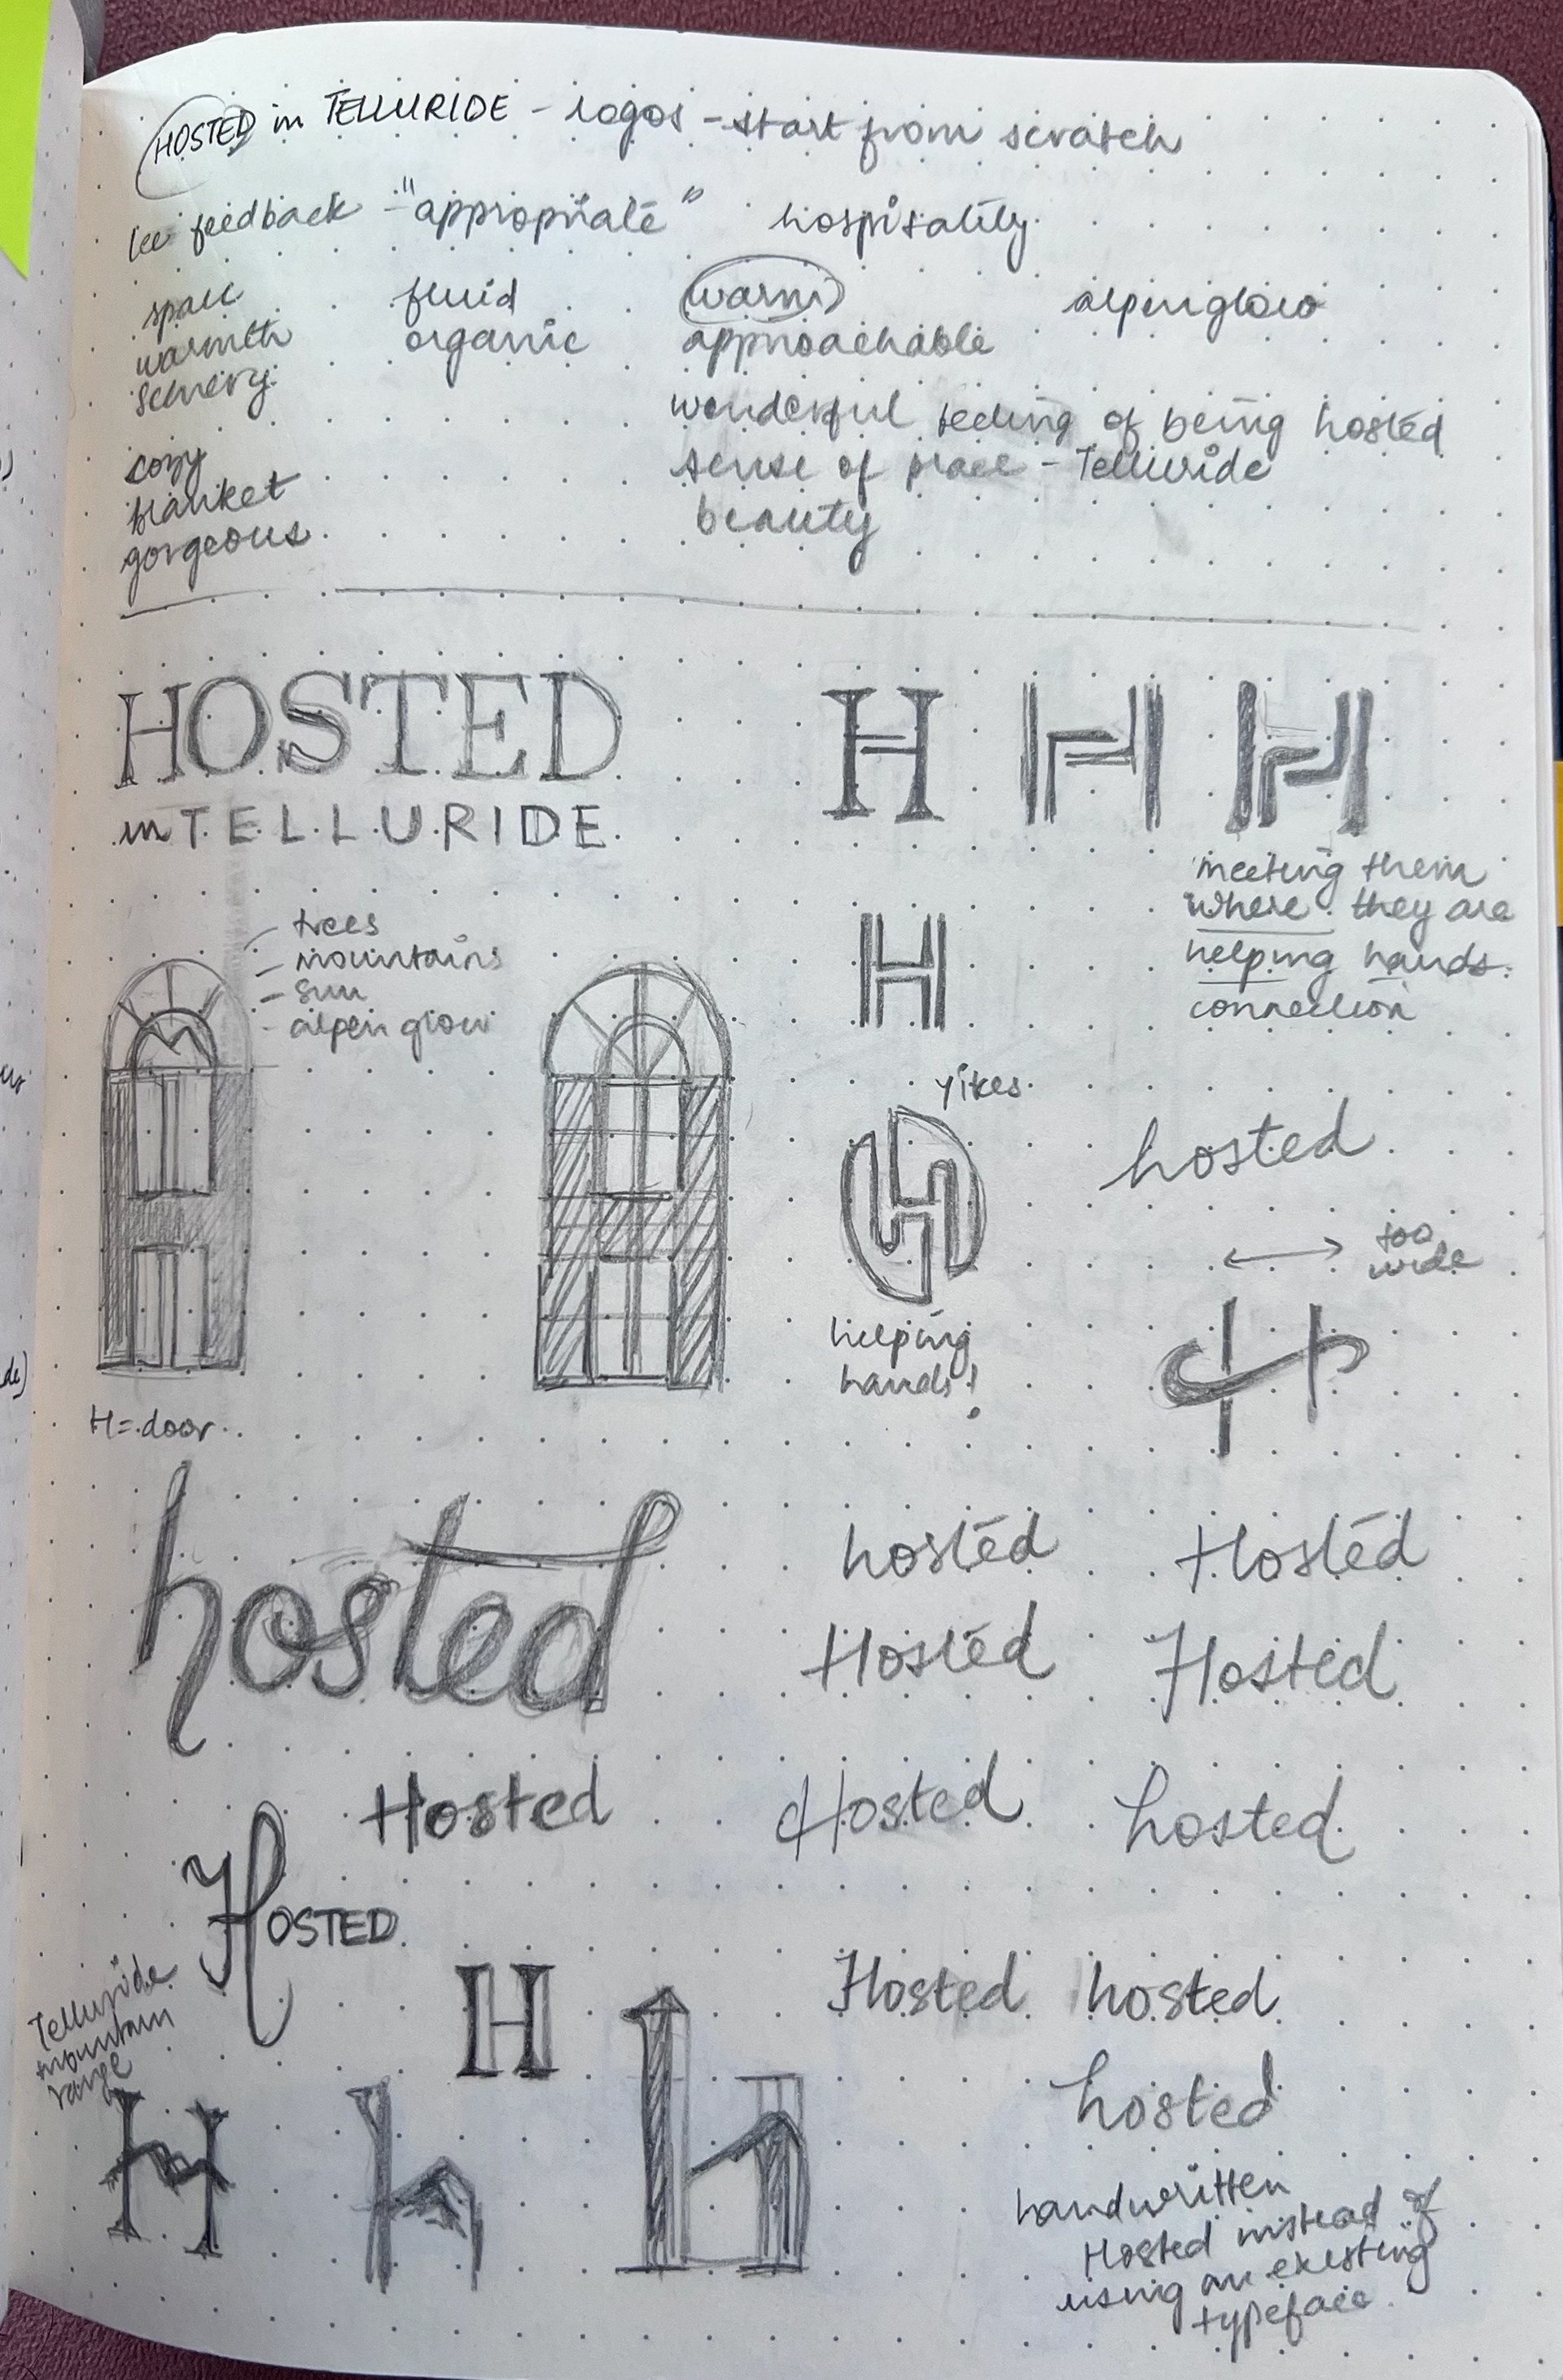 HOSTED in TELLURIDE - logos - start from scratch
feedback - "appropriate" hospitality
space fluid warm alpenglow
warmth organic approachable
scenery
wonderful feeling of being hosted
cozy sense of place - Telluride
blanket beauty
gorgeous
HOSTED H H H
in TELLURIDE
meeting them
where they are
helping hands
connection
trees
mountains
sun
alpen glow
H
yikes
H
hosted
too
wide
helping
hands!
H
H = door
hosted
hosted Hosted
Hosted Hosted
Hosted Hosted hosted
HOSTED
Telluride
mountain
range
H
Hosted hosted
hosted
H h h
handwritten
Hosted instead of
using an existing
typeface